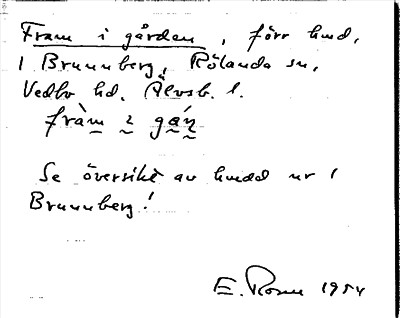 Fram i gården, förr hmd,
1 Brunnberg, Rölanda sn,
Vedbo hd. Älvsb. l.
fràm i gáɳ
Se översikt av hmdd nr 1
Brunnberg!
E. Rosm 1954